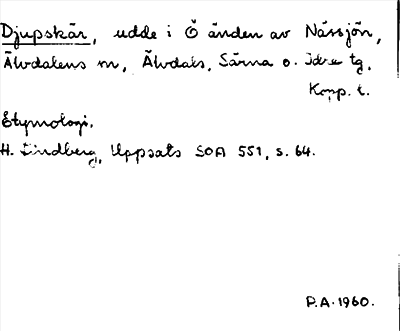 Djupskär, udde i Ö änden av Nässjön,
Älvdalens sn, Älvdals, Särna o. Idre tg,
Kopp. l.
Etymologi.
H. Lindberg, Uppsats SOA 551, s. 64.
P.A. 1960.